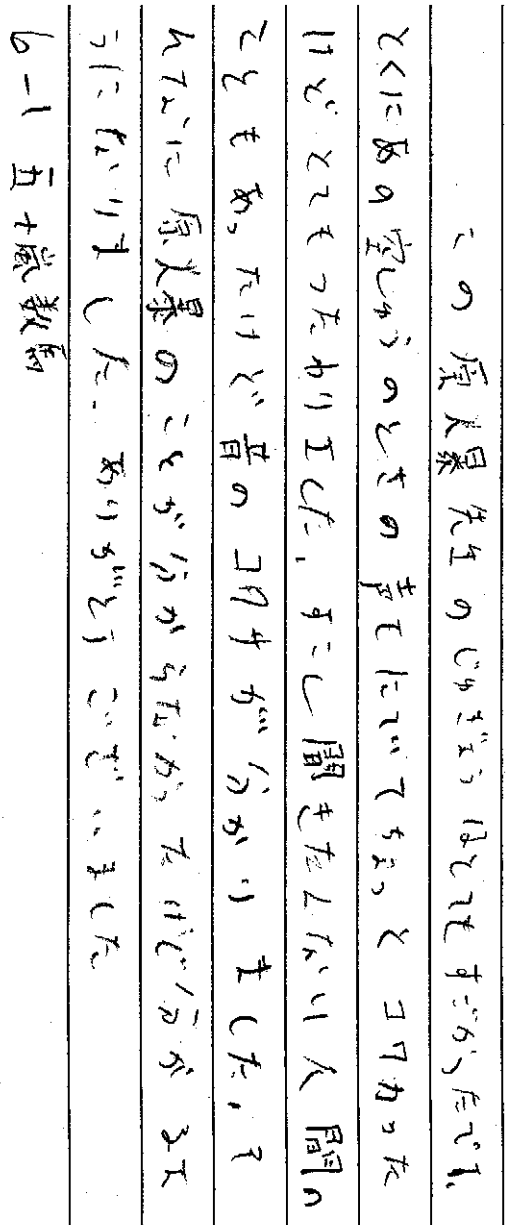 この原人暴先生のじゅぎょうはとてもすごかったです。
とくにあの空しゅうのときの声でにっいてちょっとコワカった
けどとてもつたわりました、すこし聞きたくない人間の
こともあったけど昔のコワサが分かりました、そ
んなに原人暴のことが分からなかったけど分かるよ
うになりました。ありがとうございました
6-1 五十嵐数馬